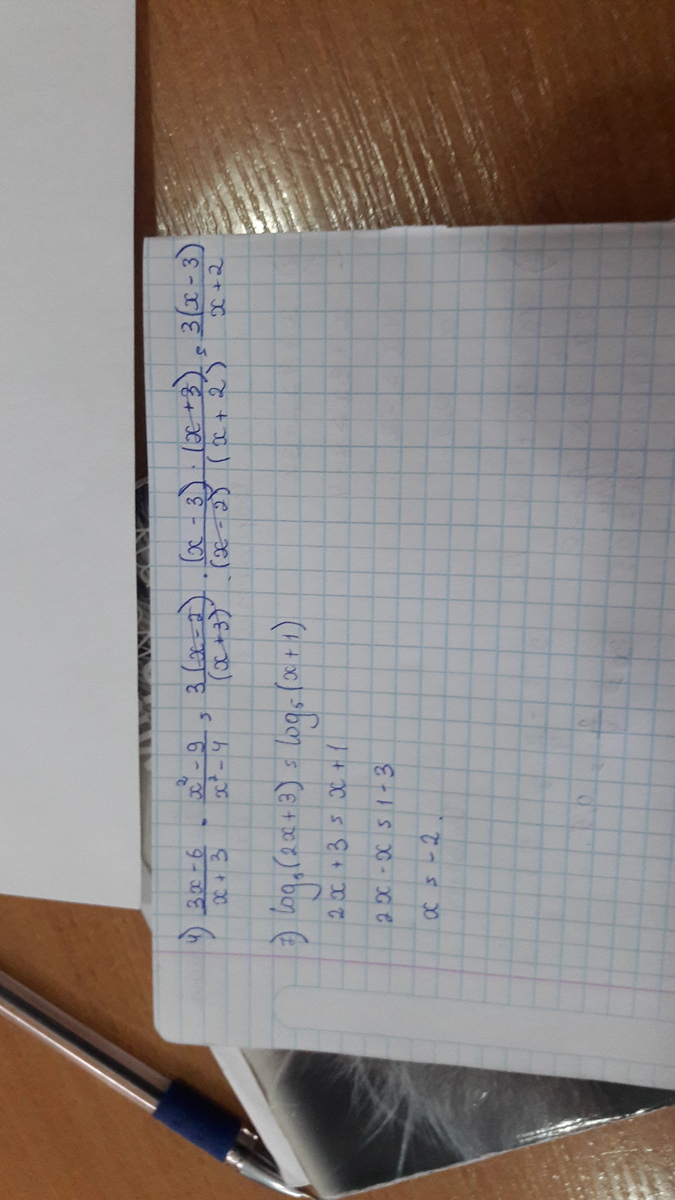 4) \frac{3x-6}{x+3} \cdot \frac{x^2-9}{x^2-4} = \frac{3(x-2)}{(x+3)} \cdot \frac{(x-3) \cdot (x+3)}{(x-2)(x+2)} = \frac{3(x-3)}{x+2}
7) log₅(2x+3) = log₅(x+1)
2x+3 = x+1
2x-x = 1-3
x = -2.